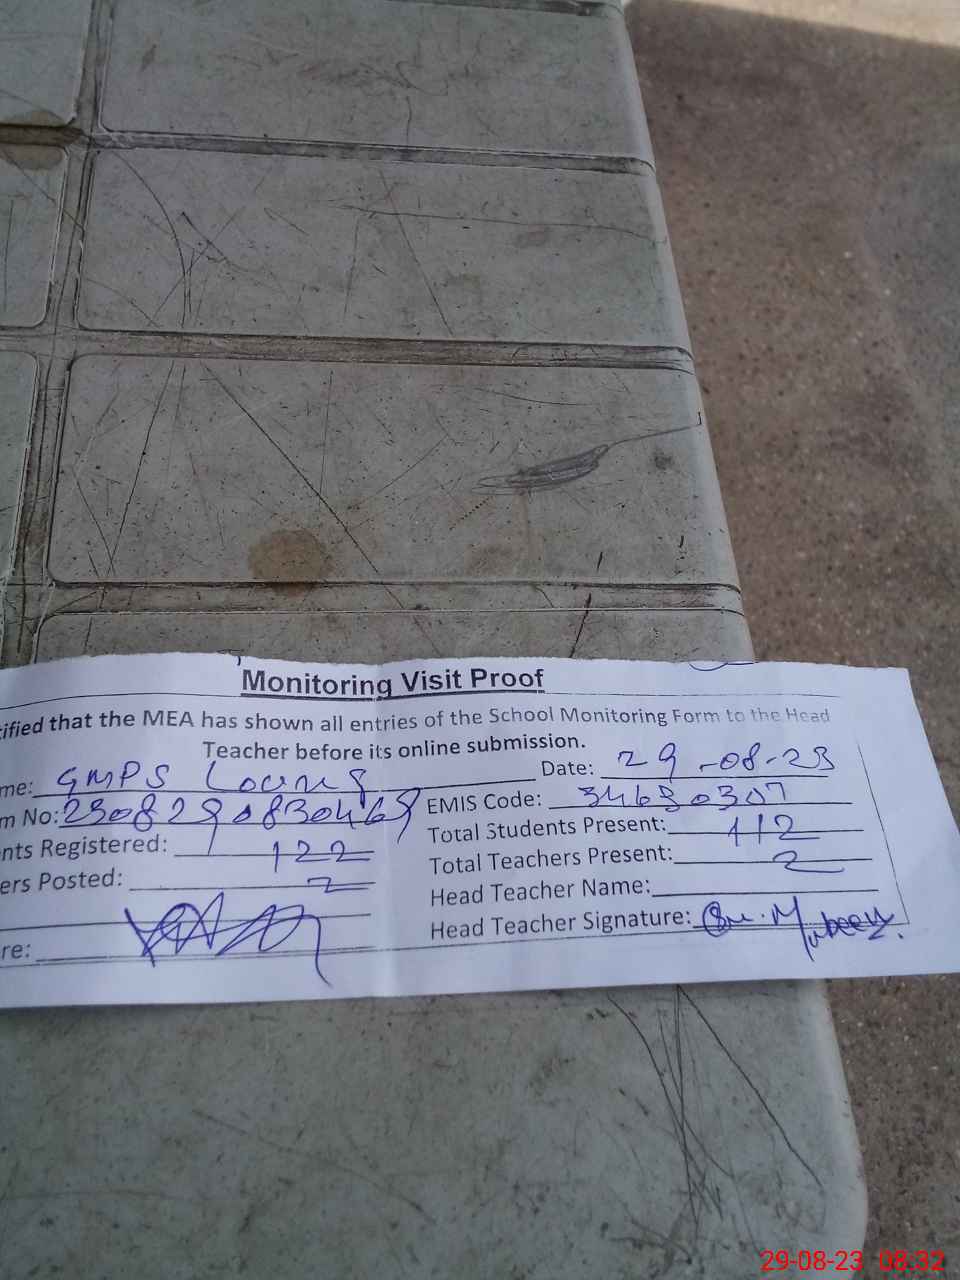 Monitoring Visit Proof
tified that the MEA has shown all entries of the School Monitoring Form to the Head
Teacher before its online submission.
me: GMPS Date: 29-08-23
m No: EMIS Code:
nts Registered: 122 Total Students Present: 112
ers Posted: 2 Total Teachers Present: 2
Head Teacher Name:
re: Head Teacher Signature:
29-08-23 08:32